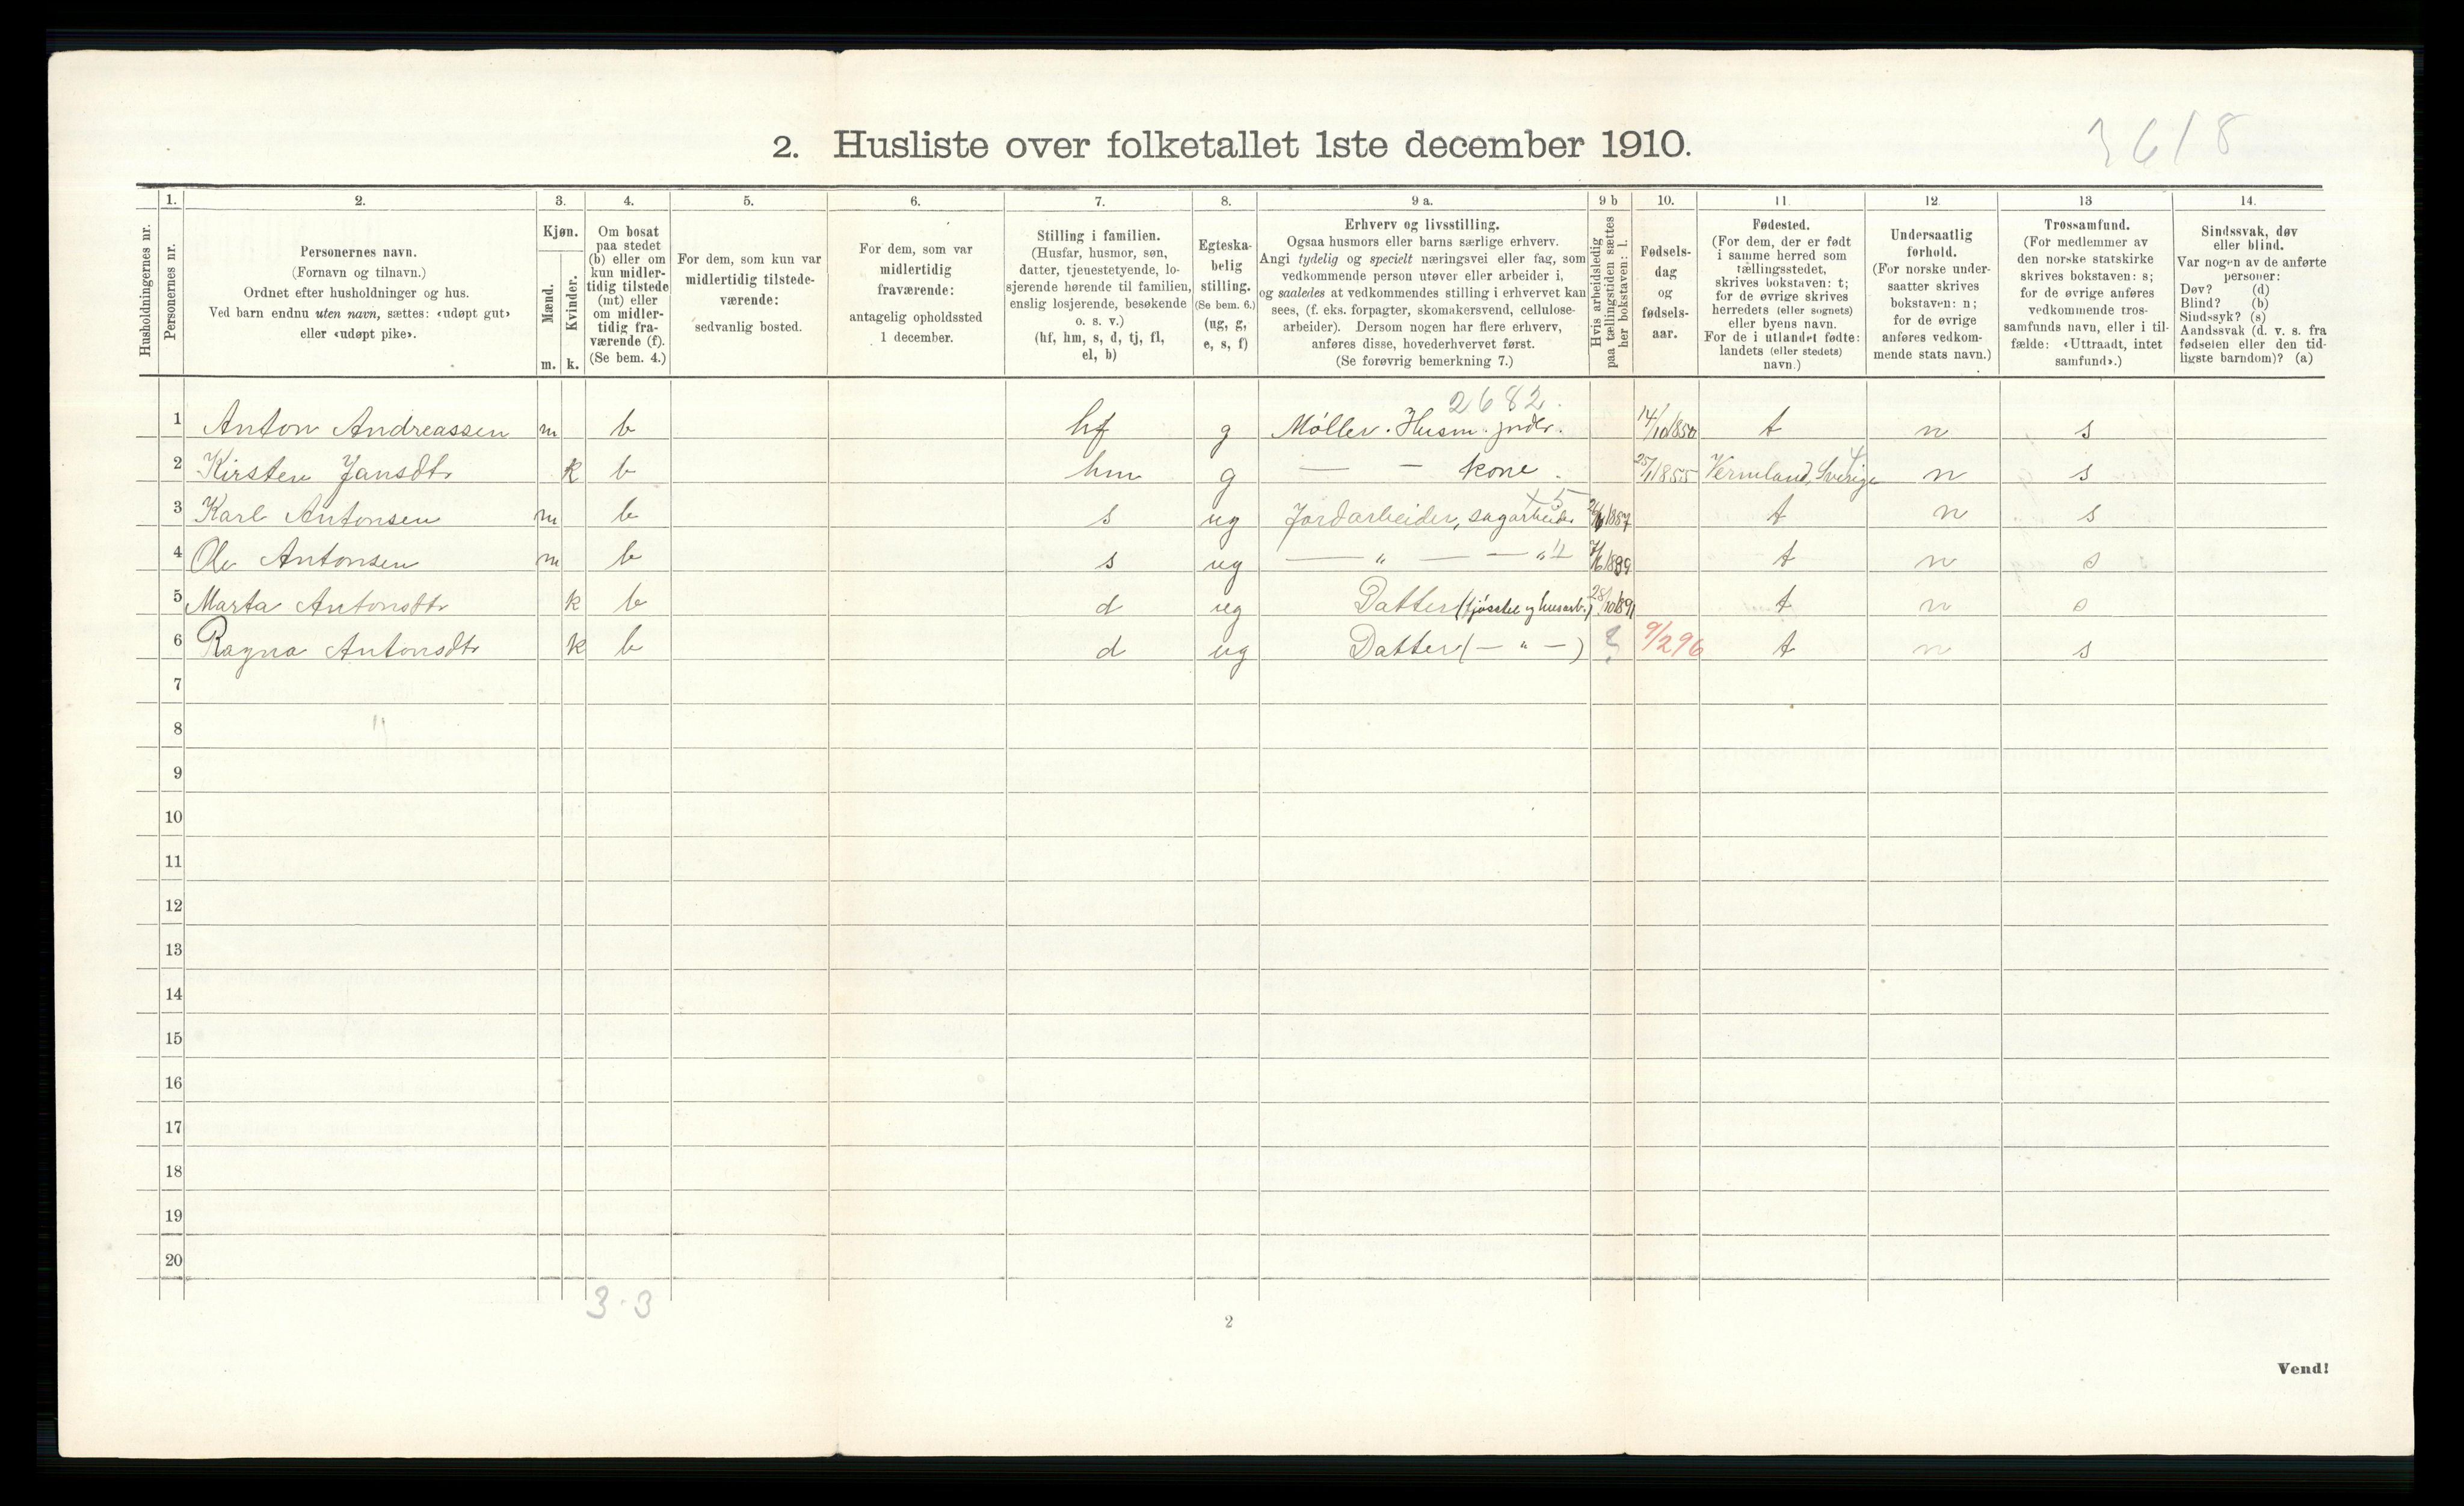 3618
2. Husliste over folketallet 1ste december 1910.
Husholdningernes nr.
1.
Personernes nr.
2.
Personernes navn.
(Fornavn og tilnavn.)
Ordnet efter husholdninger og hus.
Ved barn endnu uten navn, sættes: «udøpt gut»
eller «udøpt pike».
3.
Kjøn.
Mænd.
Kvinder.
m. k.
4.
Om bosat
paa stedet
(b) eller om
kun midler-
tidig tilstede
(mt) eller
om midler-
tidig fra-
værende (f).
(Se bem. 4.)
5.
For dem, som kun var
midlertidig tilstede-
værende:
sedvanlig bosted.
6.
For dem, som var
midlertidig
fraværende:
antagelig opholdssted
1 december.
7.
Stilling i familien.
(Husfar, husmor, søn,
datter, tjenestetyende, lo-
sjerende hørende til familien,
enslig losjerende, besøkende
o. s. v.)
(hf, hm, s, d, tj, fl,
el, b)
8.
Egteska-
belig
stilling.
(Se bem. 6.)
(ug, g,
e, s, f)
9 a.
Erhverv og livsstilling.
Ogsaa husmors eller barns særlige erhverv.
Angi tydelig og specielt næringsvei eller fag, som
vedkommende person utøver eller arbeider i,
og saaledes at vedkommendes stilling i erhvervet kan
sees, (f. eks. forpagter, skomakersvend, cellulose-
arbeider). Dersom nogen har flere erhverv,
anføres disse, hovederhvervet først.
(Se forøvrig bemerkning 7.)
9 b
Hvis arbeidsledig
paa tællingstiden sættes
her bokstaven: l.
10.
Fødsels-
dag
og
fødsels-
aar.
11.
Fødested.
(For dem, der er født
i samme herred som
tællingsstedet,
skrives bokstaven: t;
for de øvrige skrives
herredets (eller sognets)
eller byens navn.
For de i utlandet fødte:
landets (eller stedets)
navn.)
12.
Undersaatlig
forhold.
(For norske under-
saatter skrives
bokstaven: n;
for de øvrige
anføres vedkom-
mende stats navn.)
13
Trossamfund.
(For medlemmer av
den norske statskirke
skrives bokstaven: s;
for de øvrige anføres
vedkommende tros-
samfunds navn, eller i til-
fælde: «Uttraadt, intet
samfund».)
14.
Sindssvak, døv
eller blind.
Var nogen av de anførte
personer:
Døv? (d)
Blind? (b)
Sindssyk? (s)
Aandssvak (d. v. s. fra
fødselen eller den tid-
ligste barndom)? (a)
2682.
1 Anton Andreassen m b hf g Møller. Husm. 14/10 1850 t n s
2 Kirsten Jansdtr k b hm g — — kone. 25/1 1855 Vermland, Sverige n s
3 Karl Antonsen m b s ug Jordarbeider, sagarbeider 1887 t n s
4 Ole Antonsen m b s ug — „ — — „ 7/6 1889 t n s
5 Marta Antonsdtr k b d ug Datter (fjøsstel og husarb.) 28/10 1891 t n s
6 Ragna Antonsdtr k b d ug Datter (— „ —) ? 9/2 96 t n s
7
8
9
10
11
12
13
14
15
16
17
18
19
20
3 · 3
2
Vend!